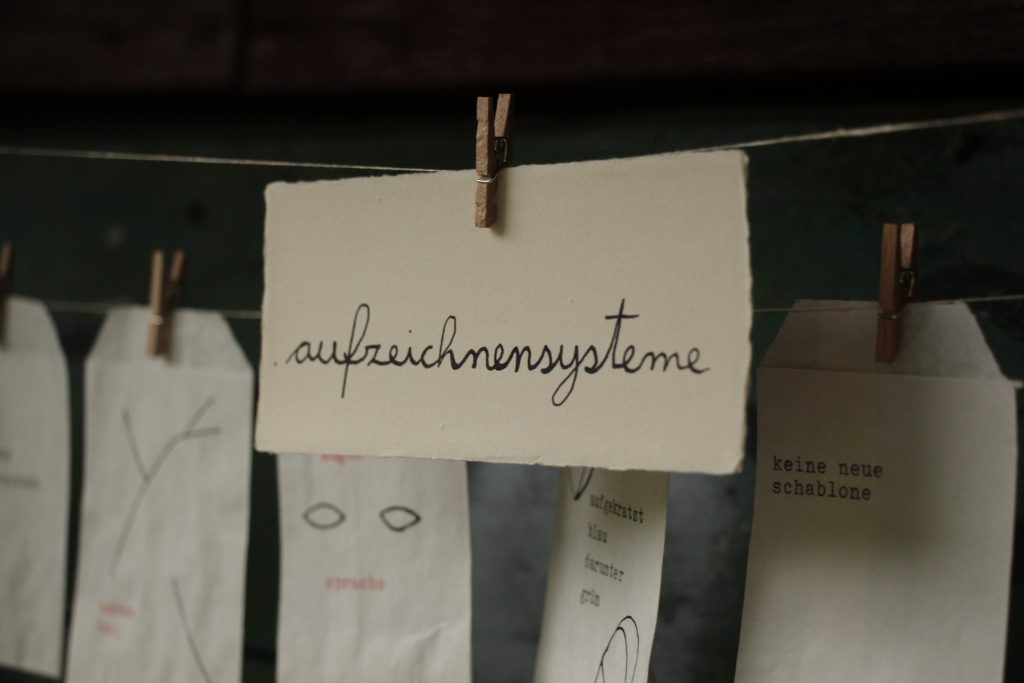 aufzeichnensysteme
sprache
aufgekratzt
blau
darunter
grün
keine neue
schablone